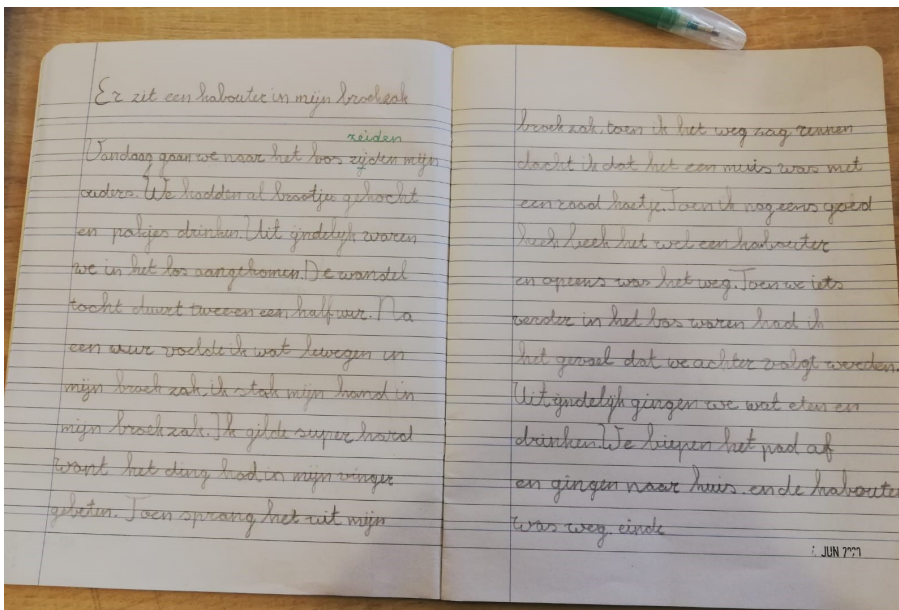 Er zit een kabouter in mijn broekzak
zeiden
Vandaag gaan we naar het bos zijden mijn
ouders. We hadden al brootjes gekocht
en pakjes drinken. Uit ijndelijk waren
we in het bos aangekomen. De wandel
tocht duurt twee en een half uur. Na
een uur voelde ik wat bewegen in
mijn broek zak, ik stak mijn hand in
mijn broekzak. Ik gilde super hard
want het ding had in mijn vinger
gebeten. Toen sprang het uit mijn
broek zak. toen ik het weg zag rennen
dacht ik dat het een muis was met
een rood hoetje. Toen ik nog eens goed
keek leek het wel een kabouter
en opeens was het weg. Toen we iets
verder in het bos waren had ik
het gevoel dat we achter volgt werden.
Uit ijndelijk gingen we wat eten en
drinken. We liepen het pad af
en gingen naar huis. en de kaboute
was weg. einde
JUN